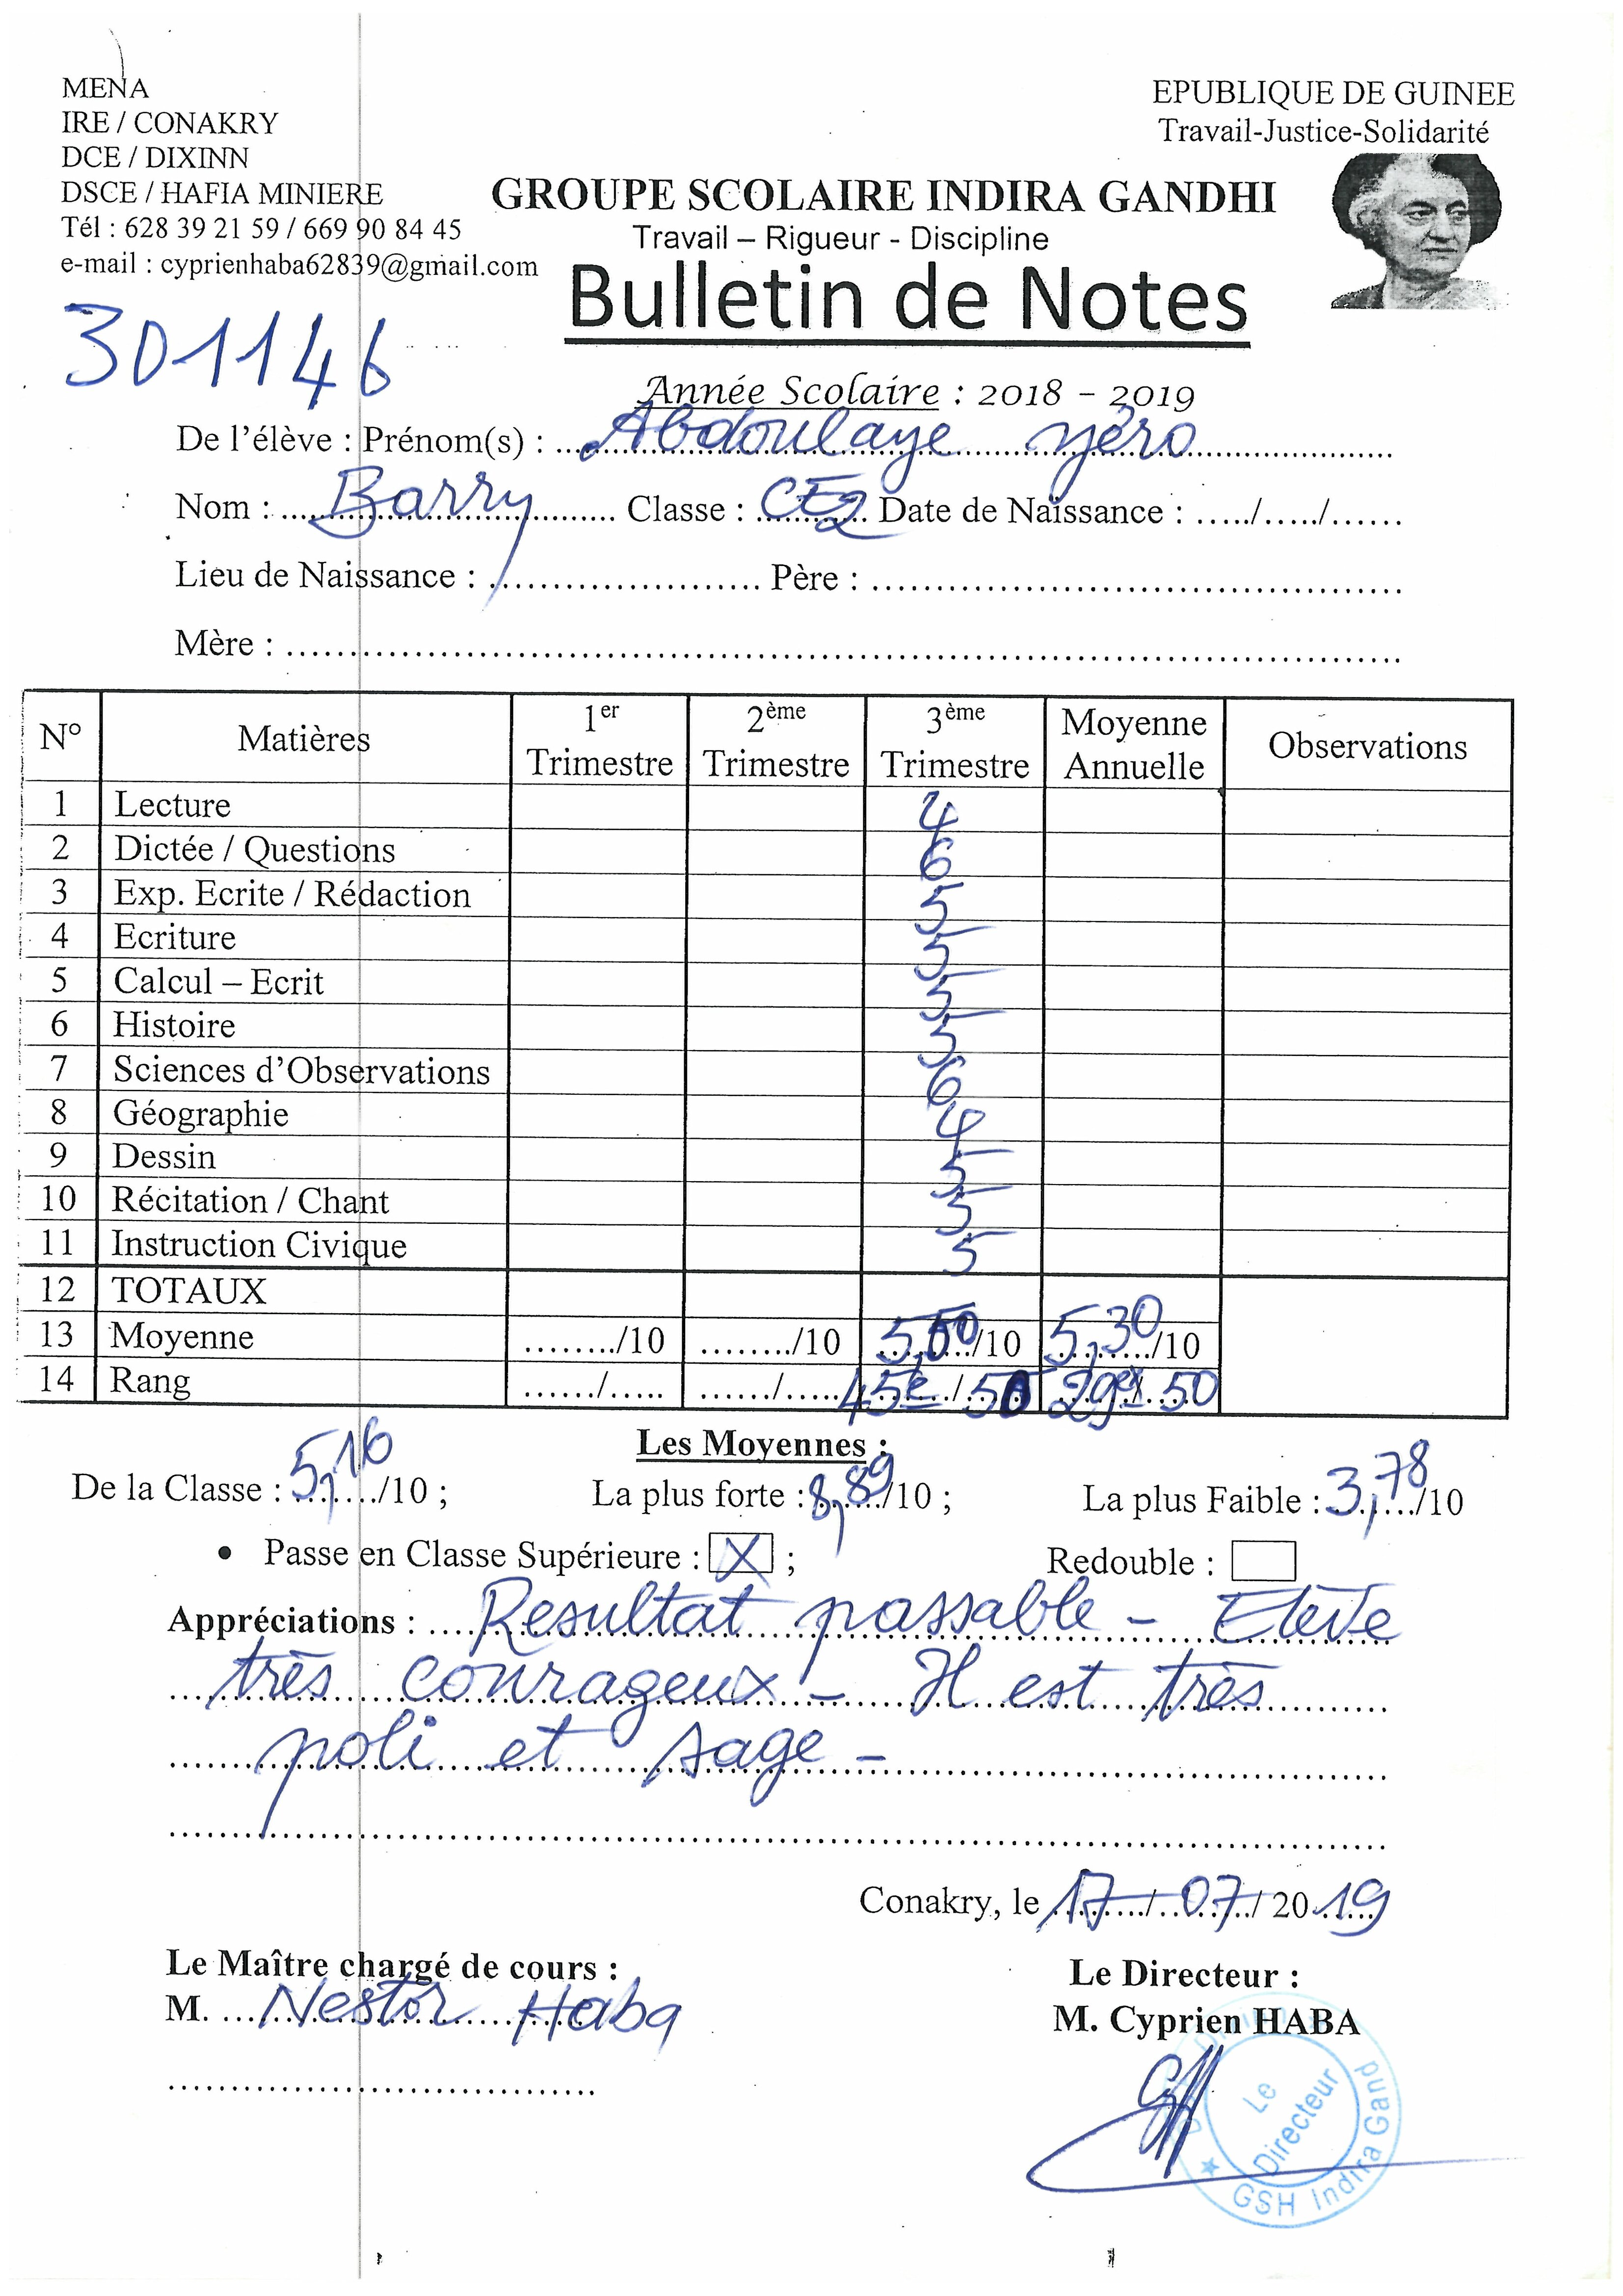 MENA
IRE / CONAKRY
DCE / DIXINN
DSCE / HAFIA MINIERE
Tél : 628 39 21 59 / 669 90 84 45
e-mail : cyprienhaba62839@gmail.com
EPUBLIQUE DE GUINEE
Travail-Justice-Solidarité
GROUPE SCOLAIRE INDIRA GANDHI
Travail – Rigueur - Discipline
Bulletin de Notes
301146
Année Scolaire : 2018 - 2019
De l'élève : Prénom(s) : Abdoulaye yéro
Nom : Barry Classe : CE2 Date de Naissance : ...../...../......
Lieu de Naissance : ........................ Père : ........................
Mère : ........................
N° Matières 1er Trimestre 2ème Trimestre 3ème Trimestre Moyenne Annuelle Observations
1 Lecture 4
2 Dictée / Questions 6
3 Exp. Ecrite / Rédaction 5
4 Ecriture 5
5 Calcul – Ecrit 5
6 Histoire 5
7 Sciences d'Observations 6
8 Géographie 4
9 Dessin 5
10 Récitation / Chant 5
11 Instruction Civique 5
12 TOTAUX
13 Moyenne ......../10 ......../10 /10 5,30/10
14 Rang ....../..... ....../..... 45e/50 29ex 50
Les Moyennes :
De la Classe : 5,16/10 ; La plus forte : 8,89/10 ; La plus Faible : 3,78/10
• Passe en Classe Supérieure : X ; Redouble :
Appréciations : Resultat passable - Elève
très courageux - Il est très
poli et sage -
Conakry, le 17/07/2019
Le Maître chargé de cours :
M. Nestor Haba
Le Directeur :
M. Cyprien HABA
Le
Directeur
GSH Indira Gand